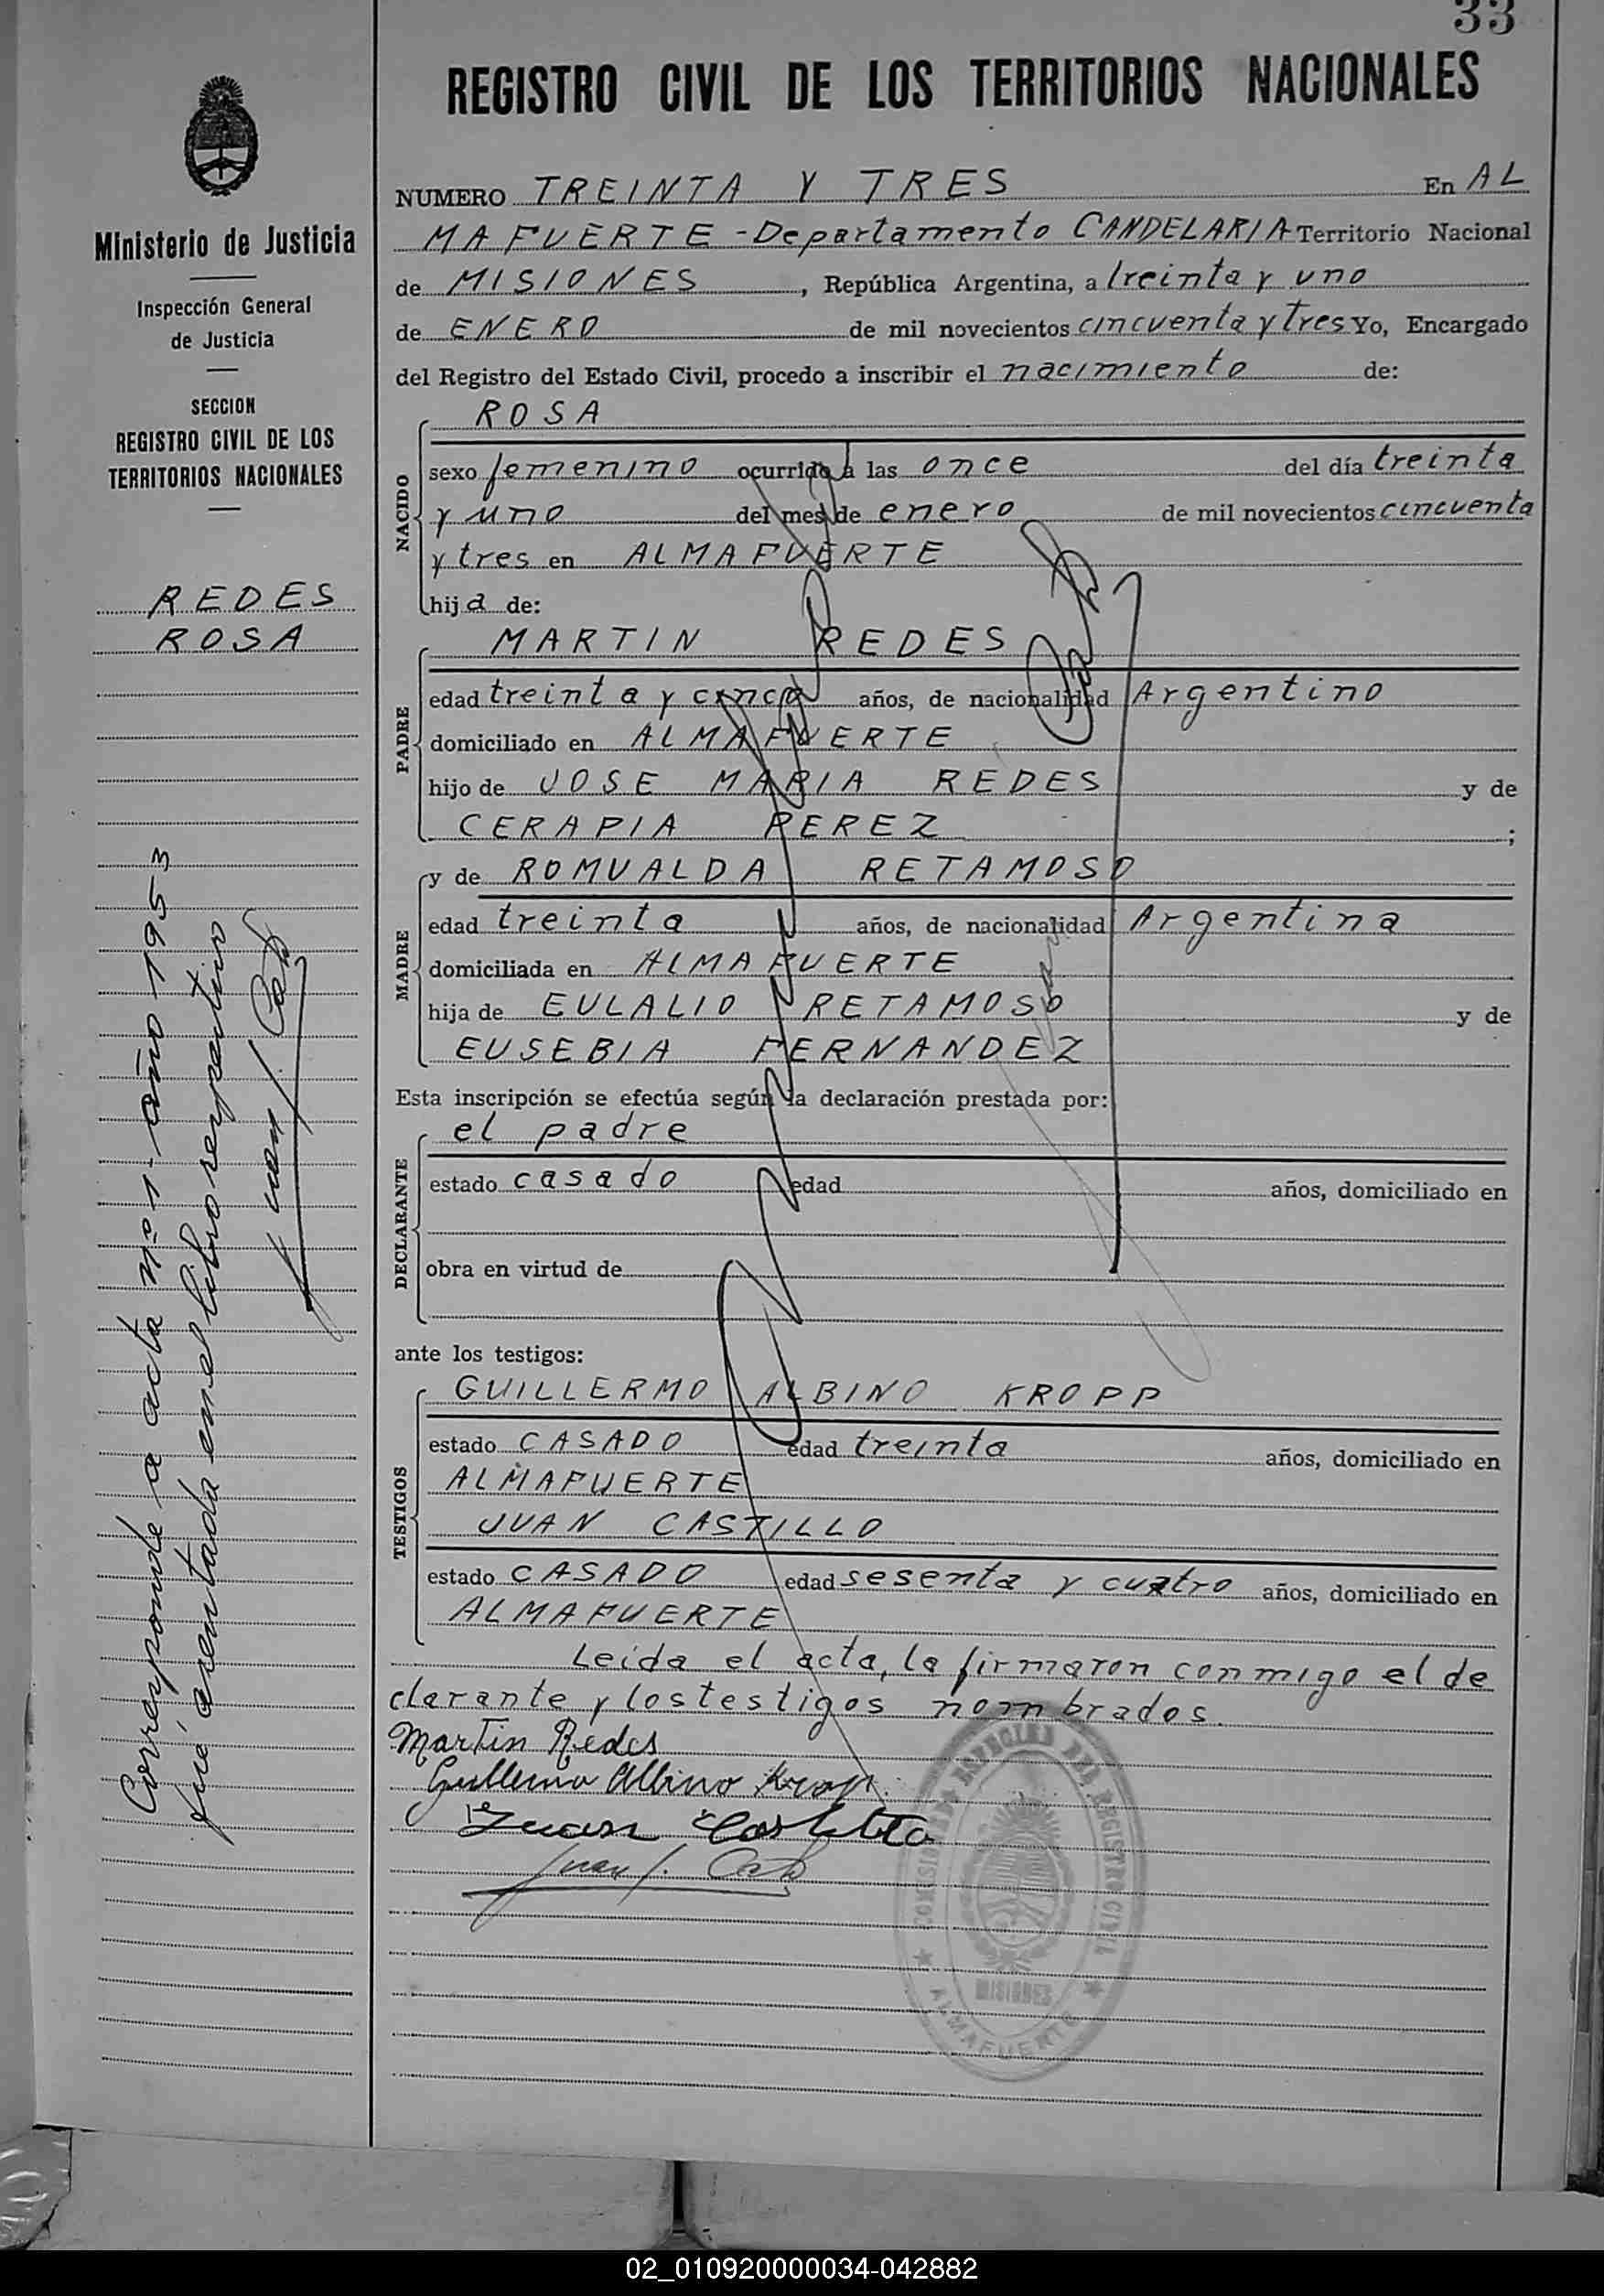 33
REGISTRO CIVIL DE LOS TERRITORIOS NACIONALES
Ministerio de Justicia
Inspección General
de Justicia
SECCION
REGISTRO CIVIL DE LOS
TERRITORIOS NACIONALES
REDES
ROSA
Corresponde a acta nº 1- año 1953
fué asentada en el libro respectivo
NUMERO TREINTA Y TRES En AL
MAFUERTE - Departamento CANDELARIA Territorio Nacional
de MISIONES, República Argentina, a treinta y uno
de ENERO de mil novecientos cincuenta y tres Yo, Encargado
del Registro del Estado Civil, procedo a inscribir el nacimiento de:
NACIDO
ROSA
sexo femenino ocurrido a las once del día treinta
y uno del mes de enero de mil novecientos cincuenta
y tres en ALMAFUERTE
hija de:
PADRE
MARTIN REDES
edad treinta y cinco años, de nacionalidad Argentino
domiciliado en ALMAFUERTE
hijo de JOSE MARIA REDES y de
CERAPIA PEREZ ;
MADRE
y de ROMUALDA RETAMOSO
edad treinta años, de nacionalidad Argentina
domiciliada en ALMAFUERTE
hija de EULALIO RETAMOSO y de
EUSEBIA FERNANDEZ
Esta inscripción se efectúa según la declaración prestada por:
DECLARANTE
el padre
estado casado edad años, domiciliado en
obra en virtud de
ante los testigos:
TESTIGOS
GUILLERMO ALBINO KROPP
estado CASADO edad treinta años, domiciliado en
ALMAFUERTE
JUAN CASTILLO
estado CASADO edad sesenta y cuatro años, domiciliado en
ALMAFUERTE
Leida el acta, la firmaron conmigo el de
clarante y los testigos nombrados.
Martin Redes
Guillermo Albino Kropp
Juan
Juan J.
REGISTRO CIVIL
MISIONES
ALMAFUERTE
02_010920000034-042882